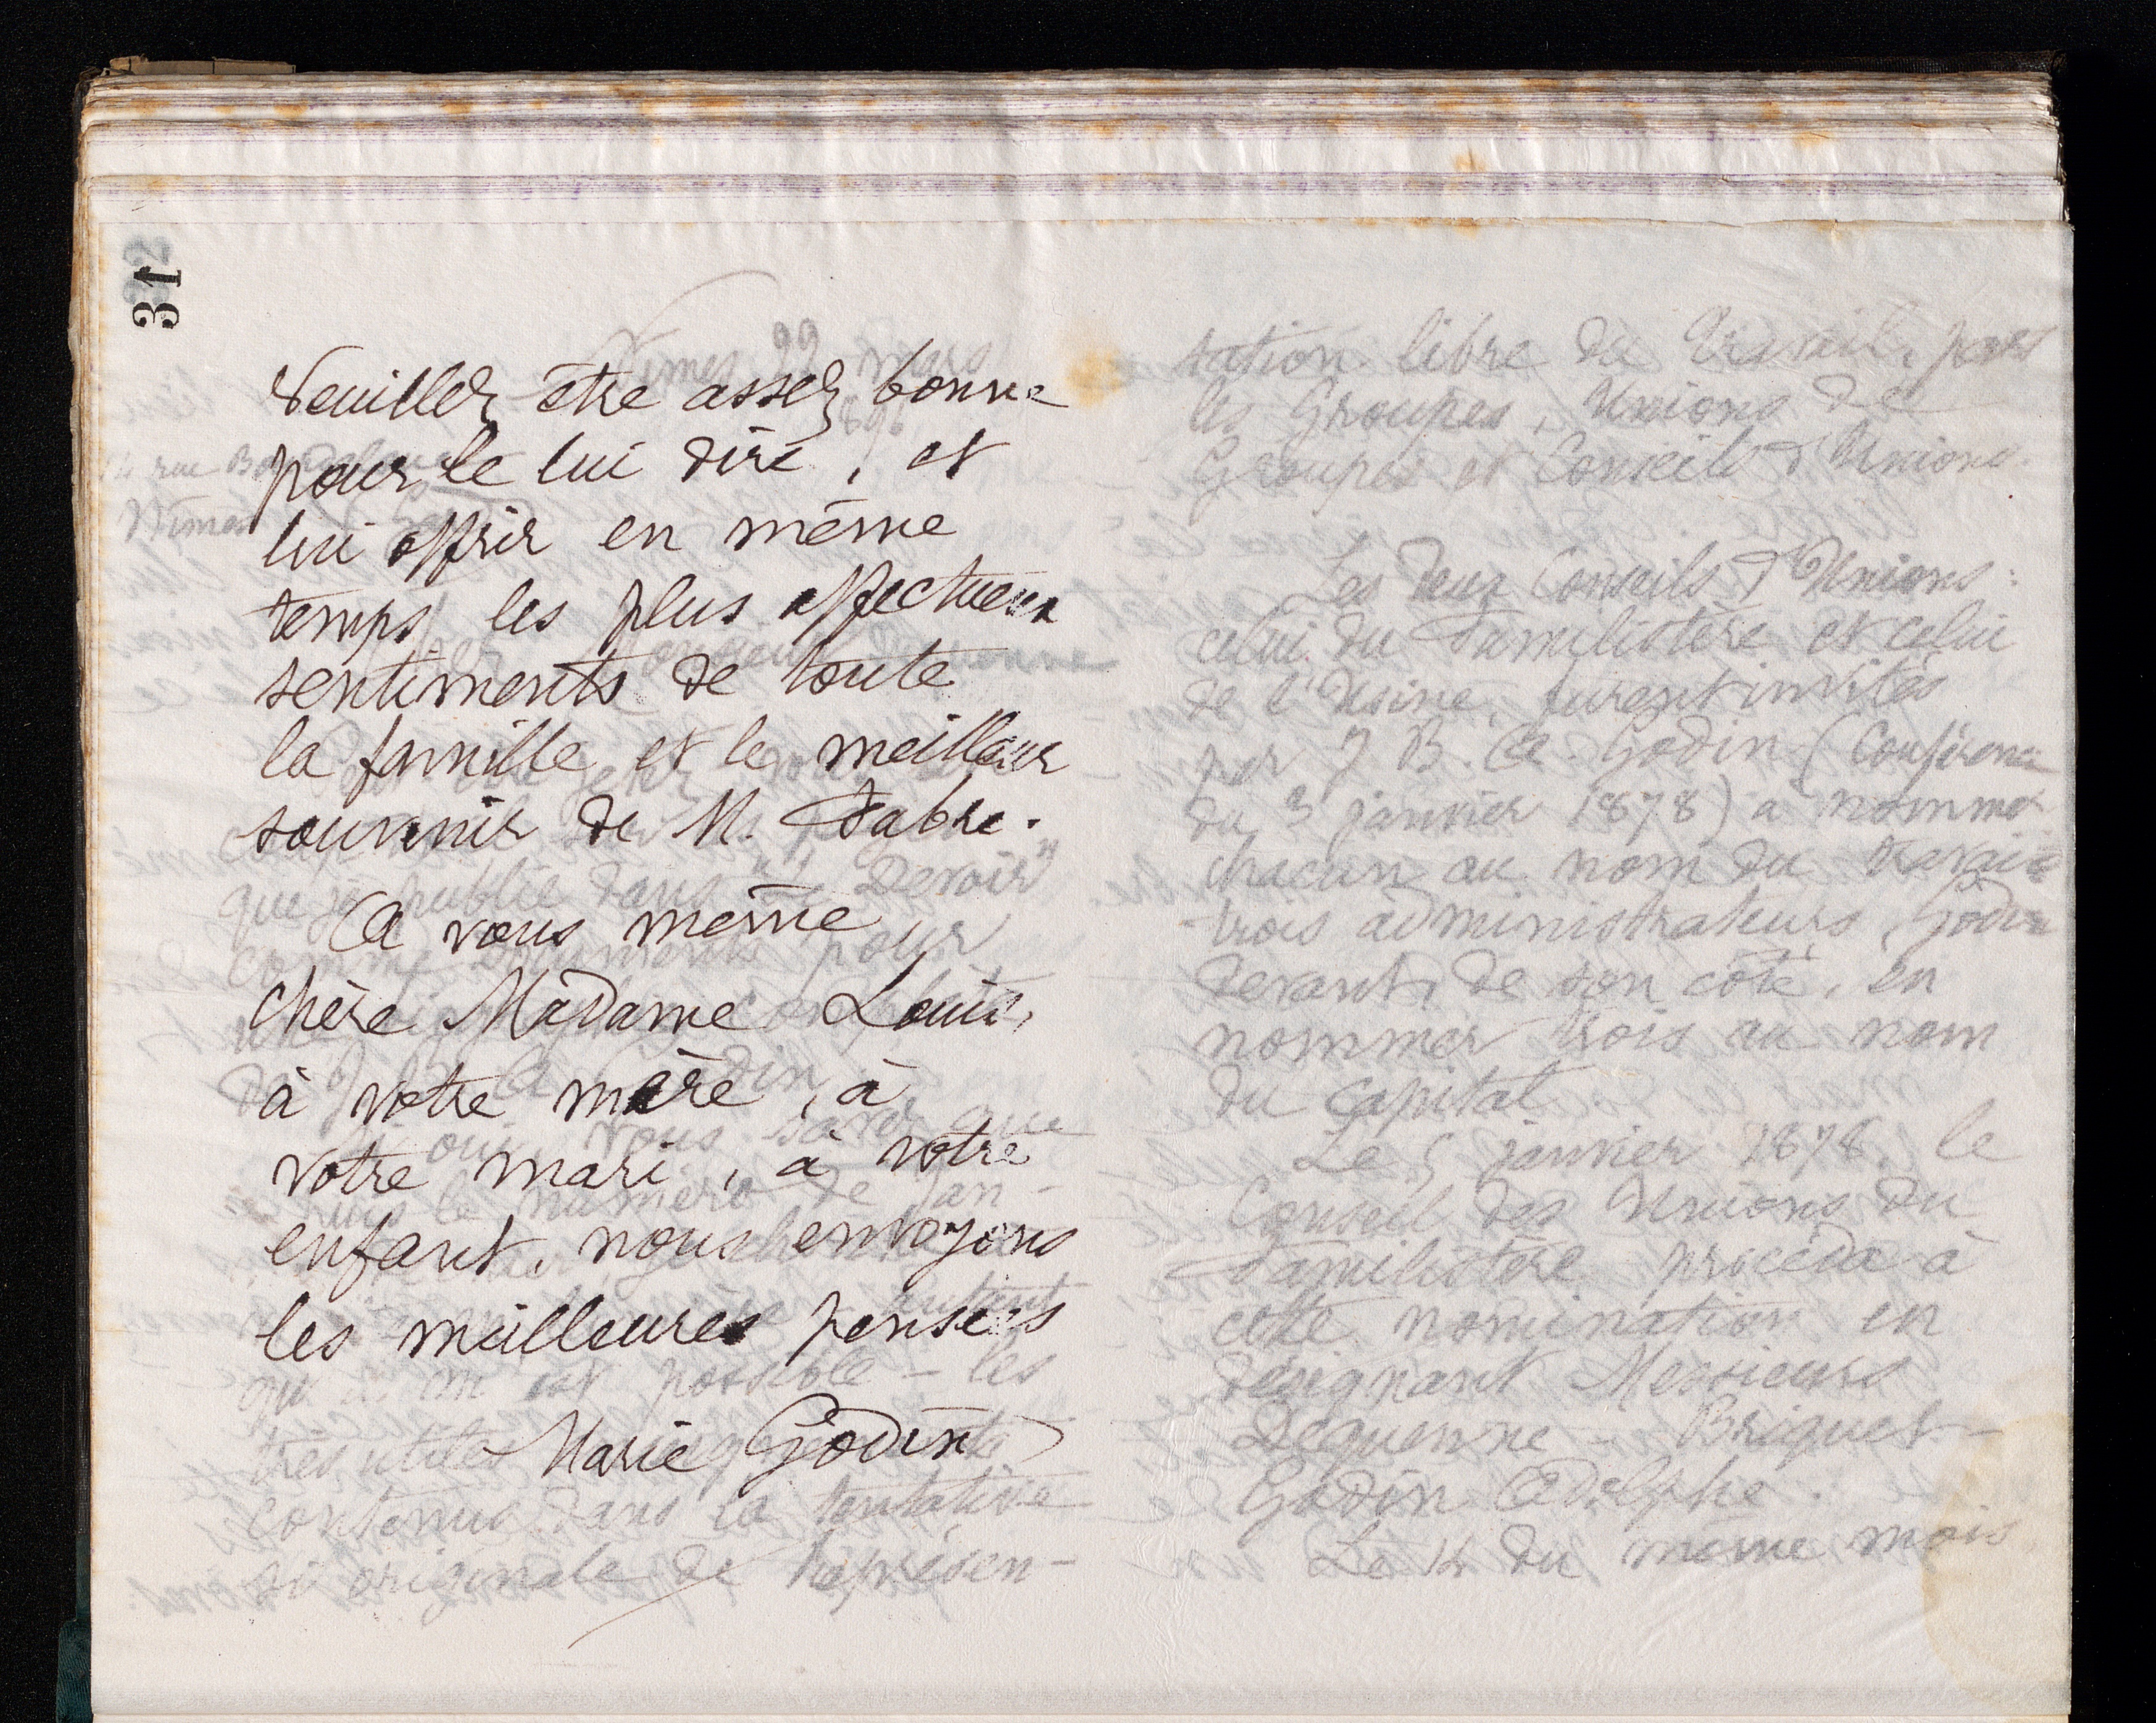 31
Veuillez être assez bonne
pour le lui dire, et
lui offrir en même
temps les plus affectueux
sentiments de toute
la famille et le meilleur
souvenir de M. Fabre.
A vous même,
chère Madame Louis,
à votre mère, à
votre mari, à votre
enfant, nous envoyons
les meilleures pensées
Marie Godin
Nîmes 29 mars
que j'ai publié dans "Le Devoir"
comme documents pour
contenus dans la tentative
si originale de représen-
tation libre du travail, par
les Groupes, Unions de
Groupes et Conseils d'Unions.
Les deux Conseils d'Unions:
celui du Familistère et celui
de l'Usine, furent invités
par J. B. A. Godin (Conférence
du 3 janvier 1878) à nommer
chacun au nom du travail
trois administrateurs, Godin
devant, de son côté, en
nommer trois au nom
du capital
Le 5 janvier 1878, le
Conseil des Unions du
Familistère procéda à
cette nomination en
désignant Messieurs
Dequenne - Briquet -
Godin Adolphe.
Le 14 du même mois